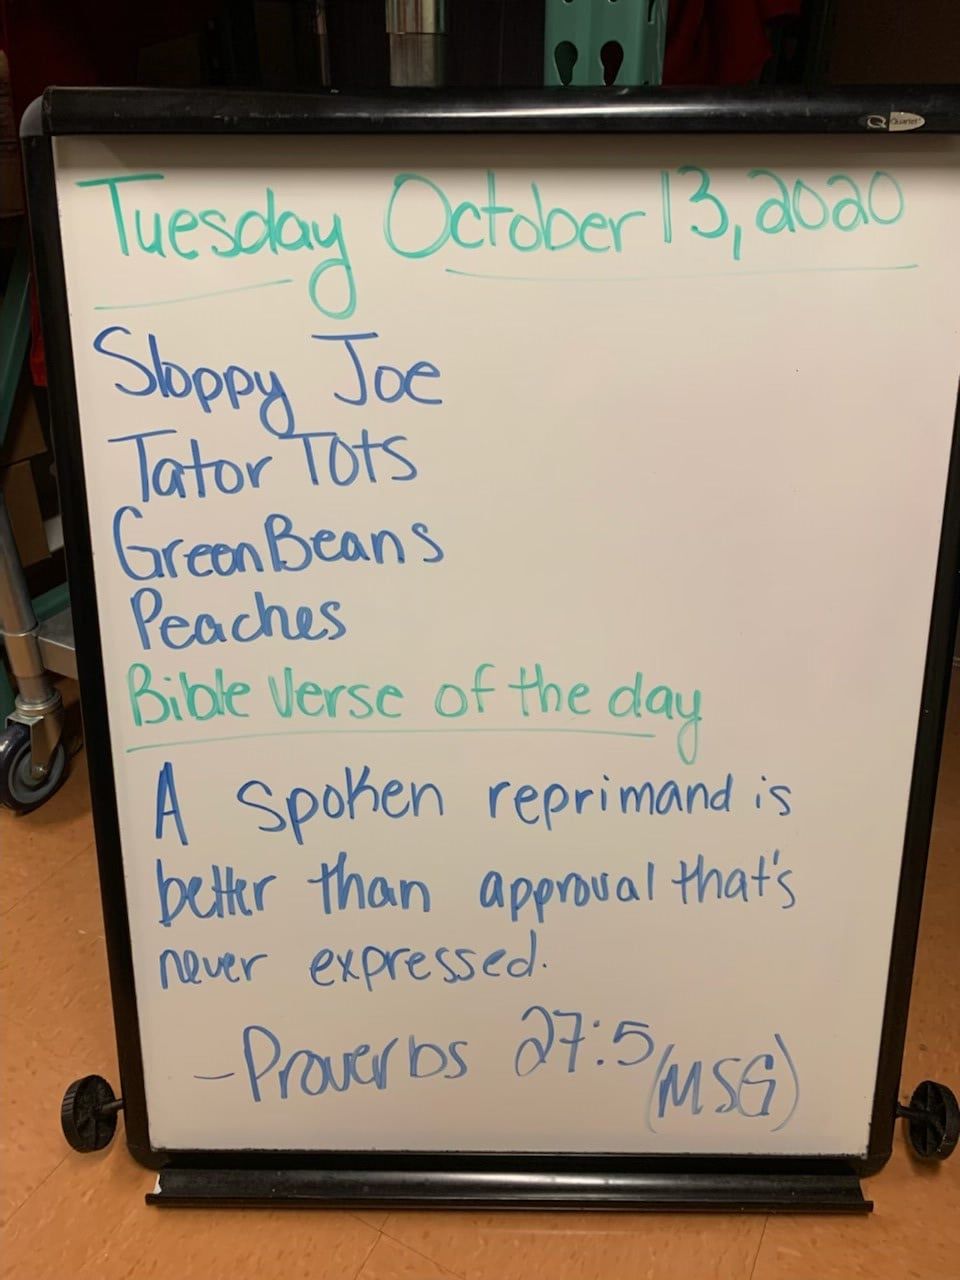 Quartet
Tuesday October 13, 2020
Sloppy Joe
Tator Tots
Green Beans
Peaches
Bible Verse of the day
A spoken reprimand is
better than approval that's
never expressed.
- Proverbs 27:5 (MSG)